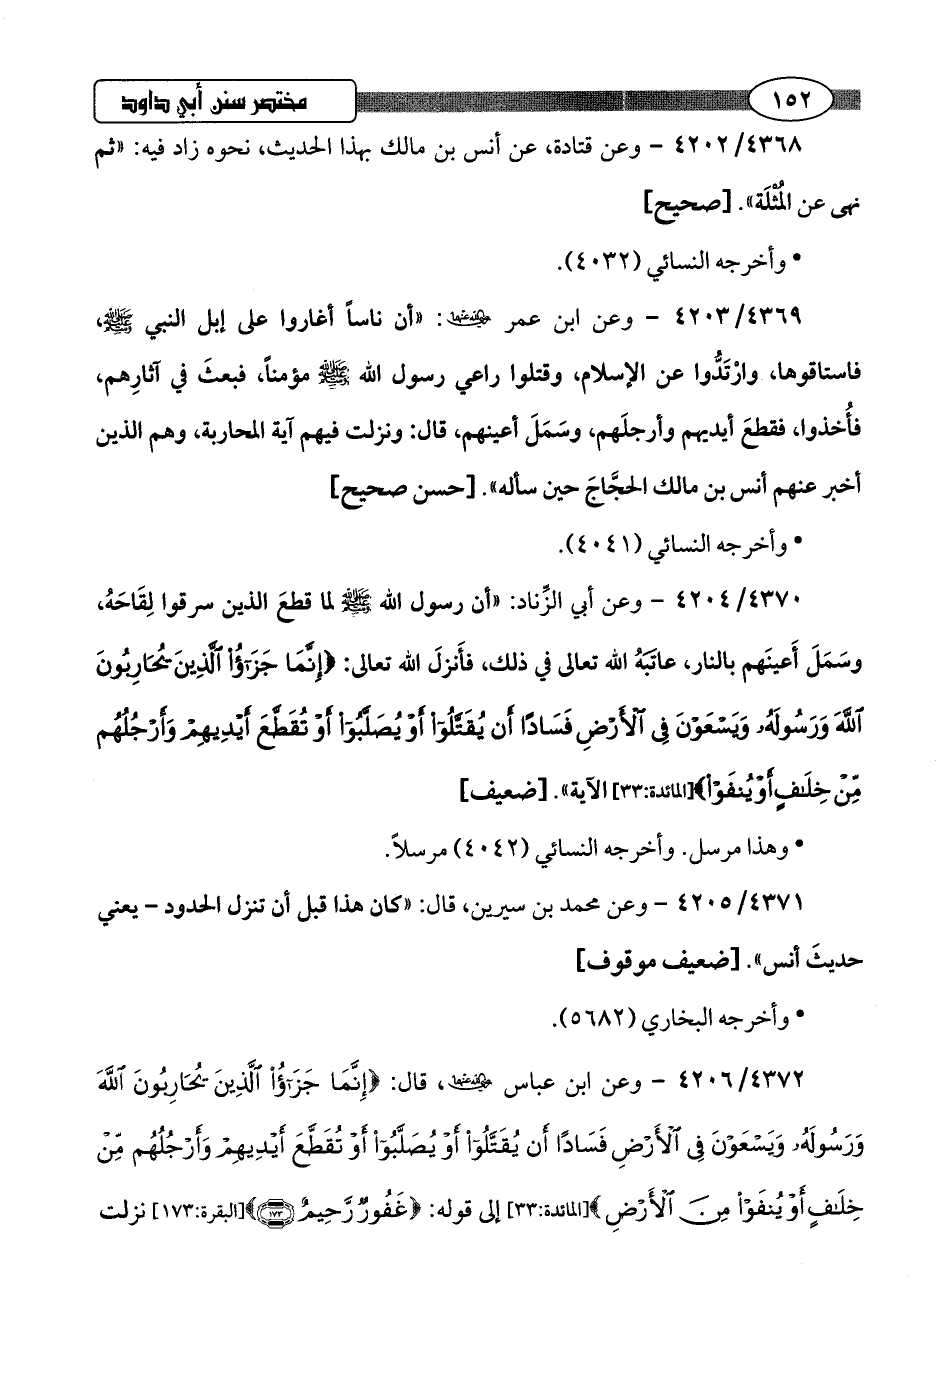 ١٥٢ مختصر سنن أبي داود
٤٢٠٢/٤٣٦٨ - وعن قتادة، عن أنس بن مالك بهذا الحديث، نحوه زاد فيه: «ثم
نهى عن المُثْلَة». [صحيح]
• وأخرجه النسائي (٤٠٣٢).
٤٢٠٣/٤٣٦٩ - وعن ابن عمر رضي الله عنهما: «أن ناساً أغاروا على إبل النبي ﷺ،
فاستاقوها، وارْتَدُّوا عن الإسلام، وقتلوا راعي رسول الله ﷺ مؤمناً، فبعثَ في آثارِهم،
فأُخذوا، فقطعَ أيديهم وأرجلَهم، وسَمَلَ أعينهم، قال: ونزلت فيهم آية المحاربة، وهم الذين
أخبر عنهم أنس بن مالك الحجَّاجَ حين سأله». [حسن صحيح]
• وأخرجه النسائي (٤٠٤١).
٤٢٠٤/٤٣٧٠ - وعن أبي الزِّناد: «أن رسول الله ﷺ لما قطعَ الذين سرقوا لِقَاحَهُ،
وسَمَلَ أعينَهم بالنار، عاتبَهُ الله تعالى في ذلك، فأَنزلَ الله تعالى: ﴿إِنَّمَا جَزَٰٓؤُا۟ ٱلَّذِينَ يُحَارِبُونَ
ٱللَّهَ وَرَسُولَهُۥ وَيَسْعَوْنَ فِى ٱلْأَرْضِ فَسَادًا أَن يُقَتَّلُوٓا۟ أَوْ يُصَلَّبُوٓا۟ أَوْ تُقَطَّعَ أَيْدِيهِمْ وَأَرْجُلُهُم
مِّنْ خِلَٰفٍ أَوْ يُنفَوْا۟﴾[المائدة:٣٣] الآية». [ضعيف]
• وهذا مرسل. وأخرجه النسائي (٤٠٤٢) مرسلاً.
٤٢٠٥/٤٣٧١ - وعن محمد بن سيرين، قال: «كان هذا قبل أن تنزل الحدود - يعني
حديثَ أنس». [ضعيف موقوف]
• وأخرجه البخاري (٥٦٨٢).
٤٢٠٦/٤٣٧٢ - وعن ابن عباس رضي الله عنهما، قال: ﴿إِنَّمَا جَزَٰٓؤُا۟ ٱلَّذِينَ يُحَارِبُونَ ٱللَّهَ
وَرَسُولَهُۥ وَيَسْعَوْنَ فِى ٱلْأَرْضِ فَسَادًا أَن يُقَتَّلُوٓا۟ أَوْ يُصَلَّبُوٓا۟ أَوْ تُقَطَّعَ أَيْدِيهِمْ وَأَرْجُلُهُم مِّنْ
خِلَٰفٍ أَوْ يُنفَوْا۟ مِنَ ٱلْأَرْضِ﴾[المائدة:٣٣] إلى قوله: ﴿غَفُورٌ رَّحِيمٌ ١٧٣﴾[البقرة:١٧٣] نزلت